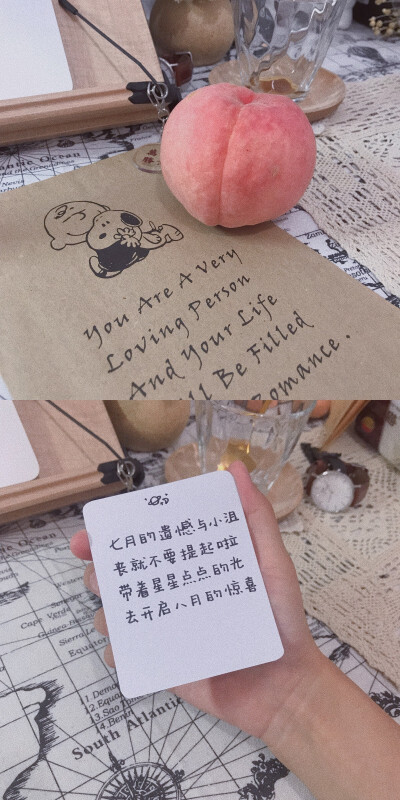 You Are A Very
Loving Person
And Your Life
Be Filled
Romance.
七月的遗憾与小沮
丧就不要提起啦
带着星星点点的光
去开启八月的惊喜
Cape Verde
Equator
South Atlantic